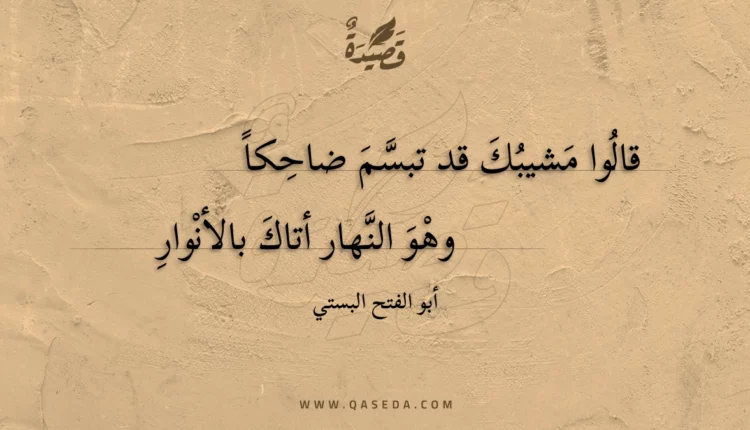 قَصِيْدَةٌ
قالُوا مَشيبُكَ قد تبسَّمَ ضاحِكاً
وهْوَ النَّهار أتاكَ بالأنْوارِ
أبو الفتح البستي
WWW.QASEDA.COM